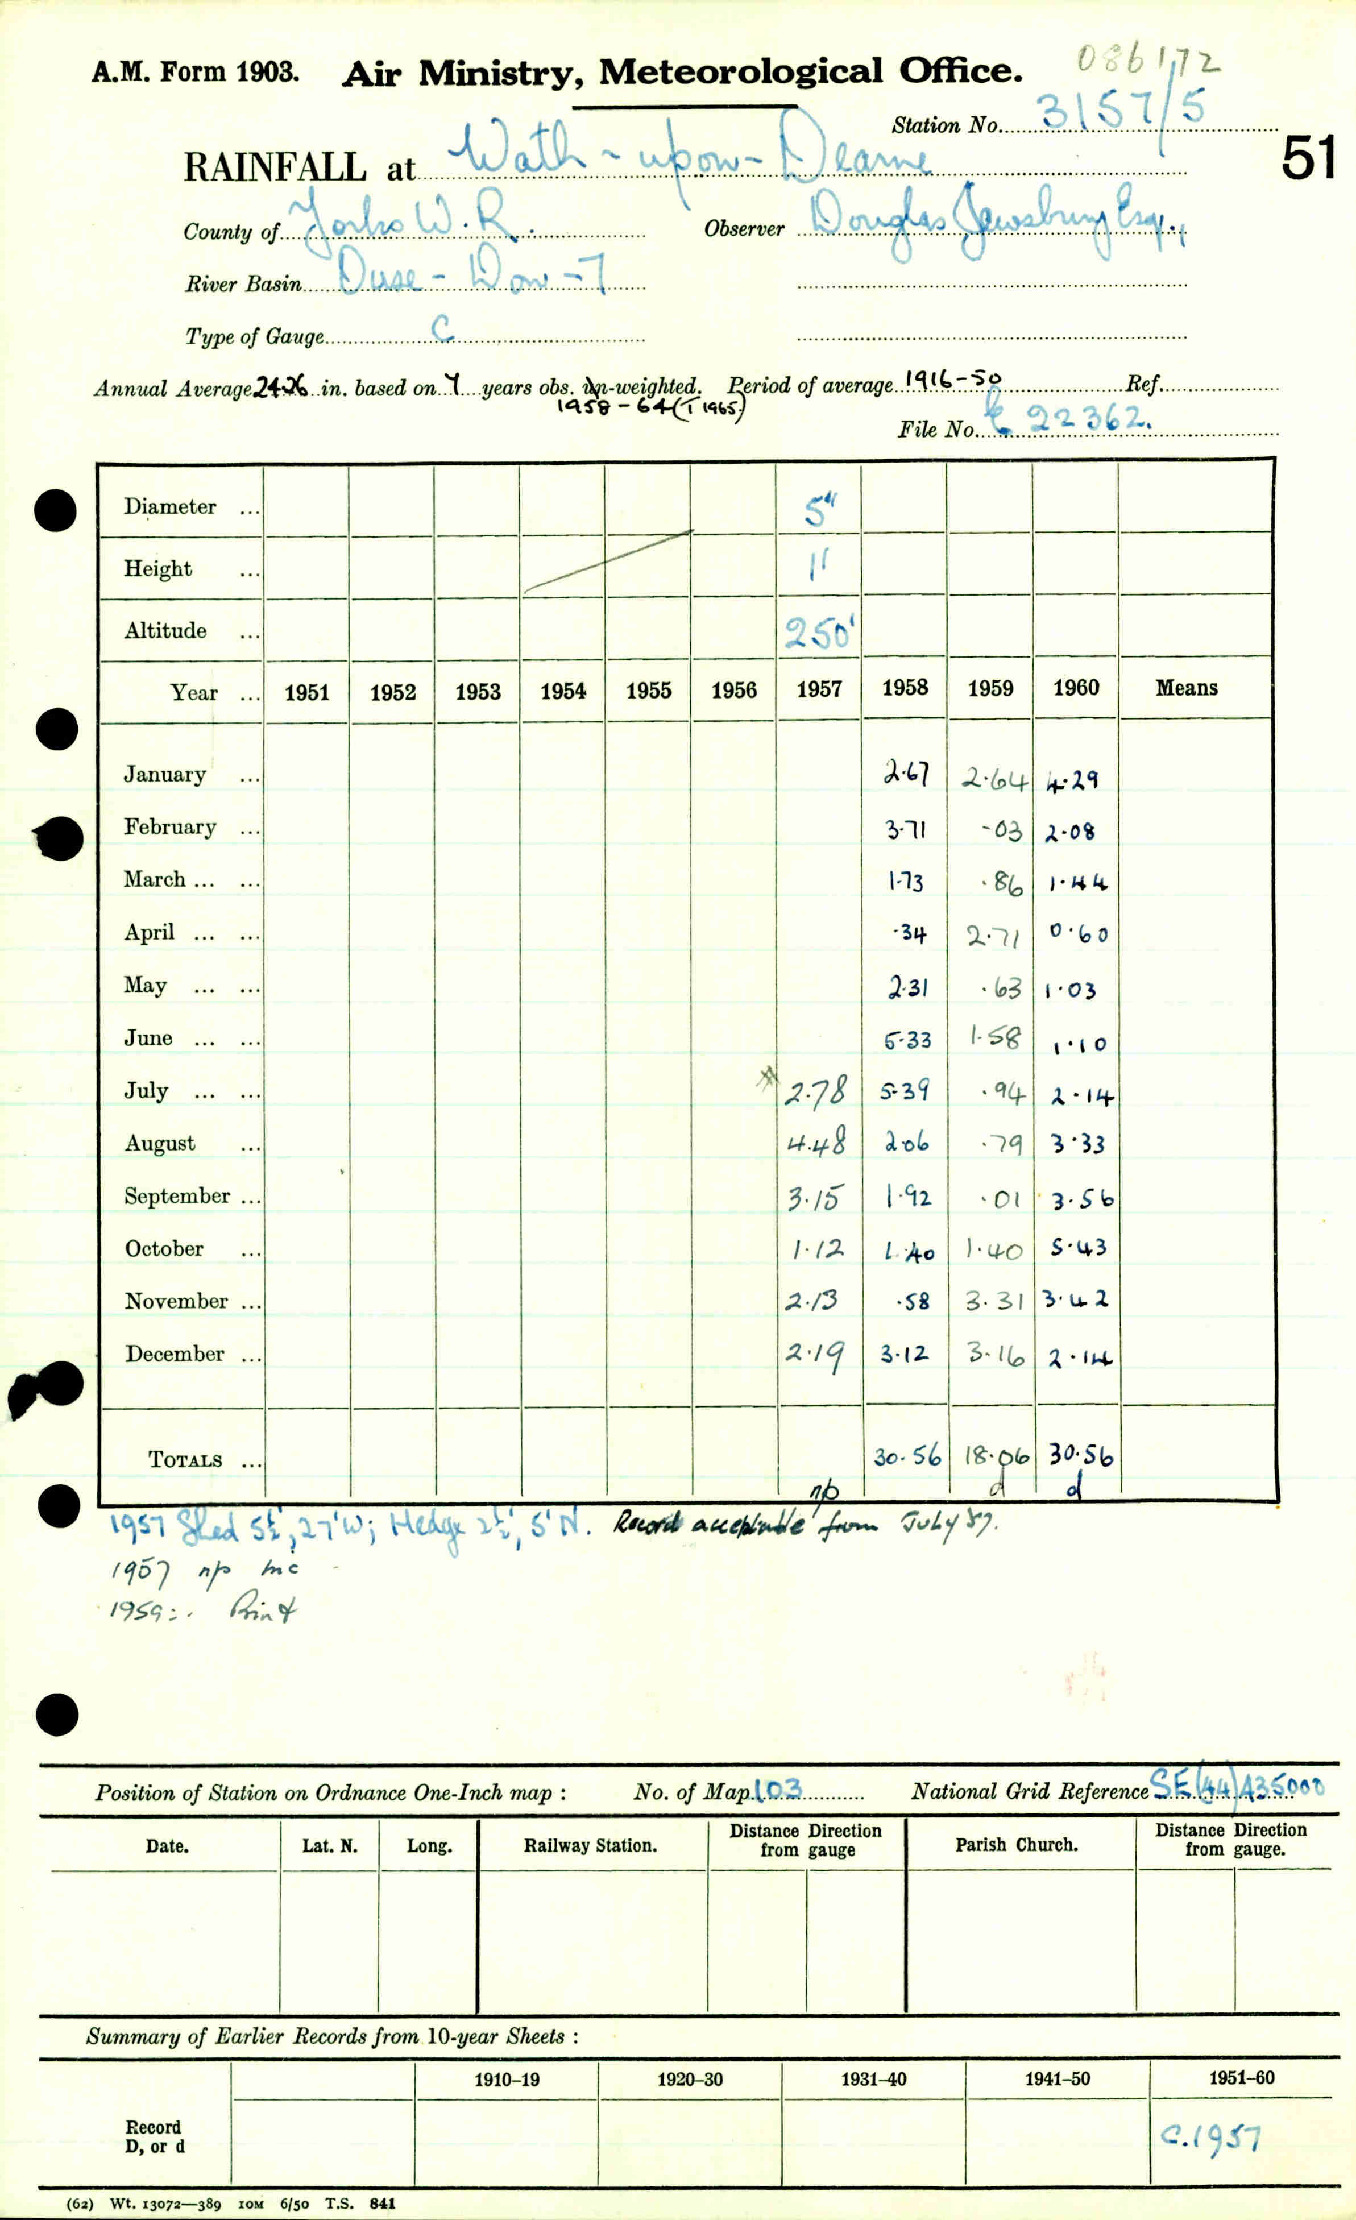 086172
A.M. Form 1903. Air Ministry, Meteorological Office.
Station No. 3157/5
51
RAINFALL at Wath-upon-Dearne
County of Yorks W.R. Observer Douglas Jewsbury Esq.,
River Basin Ouse - Don - 7
Type of Gauge C
Annual Average 24.26 in. based on 7 years obs. un-weighted. Period of average 1916-50 Ref.
1958-64 (T 1965)
File No. 22362.
Diameter ... 5"
Height ... 1'
Altitude ... 250'
Year ... 1951 1952 1953 1954 1955 1956 1957 1958 1959 1960 Means
January ... 2.67 2.64 4.29
February ... 3.71 .03 2.08
March ... ... 1.73 .86 1.44
April ... ... .34 2.71 0.60
May ... ... 2.31 .63 1.03
June ... ... 5.33 1.58 1.10
July ... ... 2.78 5.39 .94 2.14
August ... 4.48 2.06 .79 3.33
September ... 3.15 1.92 .01 3.56
October ... 1.12 1.40 1.40 5.43
November ... 2.13 .58 3.31 3.42
December ... 2.19 3.12 3.16 2.14
TOTALS ... 30.56 18.06 30.56
np d d
1957 Shed 5½', 27'W; Hedge 2½', 5'N. Record acceptable from July 57.
1957 np inc
1959: Print
Position of Station on Ordnance One-Inch map : No. of Map 103 National Grid Reference SE(44)435000
Date. Lat. N. Long. Railway Station. Distance from Direction gauge Parish Church. Distance from Direction gauge.
Summary of Earlier Records from 10-year Sheets :
1910–19 1920–30 1931–40 1941–50 1951–60
Record
D, or d
C.1957
(62) Wt. 13072—389 10M 6/50 T.S. 841